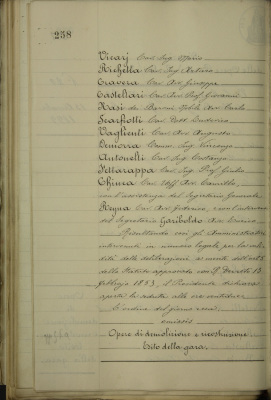 258
Vicarj Cav. Ing. Mario
Richetta Cav. Ing. Arturo
Cravera Cav. Avv. Giuseppe
Castellari Cav. Avv. Prof. Giovanni
Rasi de Nobile Avv. Carlo
Scarfiotti Cav. Dott. Lodovico
Vaglienti Cav. Avv. Augusto
Deniorra Comm. Ing. Vincenzo
Antonelli Cav. Ing. Costanzo
Cav. Ing. Prof. Giulio
Chiusa Cav. Uff. Avv. Camillo
con l'assistenza del Segretario Generale
Cav. Avv. Federico, e con l'intervento
del Segretario Gariboldo Avv.
Risultando così gli Amministratori
intervenuti in numero legale per la vali
dità delle deliberazioni a mente dell'art. 8
dello Statuto approvato con R. Decreto 13
febbraio 1853, il Presidente dichiara
aperta la seduta alle ore ventidue
L'ordine del giorno reca:
omissis
Opere di demolizione e ricostruzione
Esito della gara.